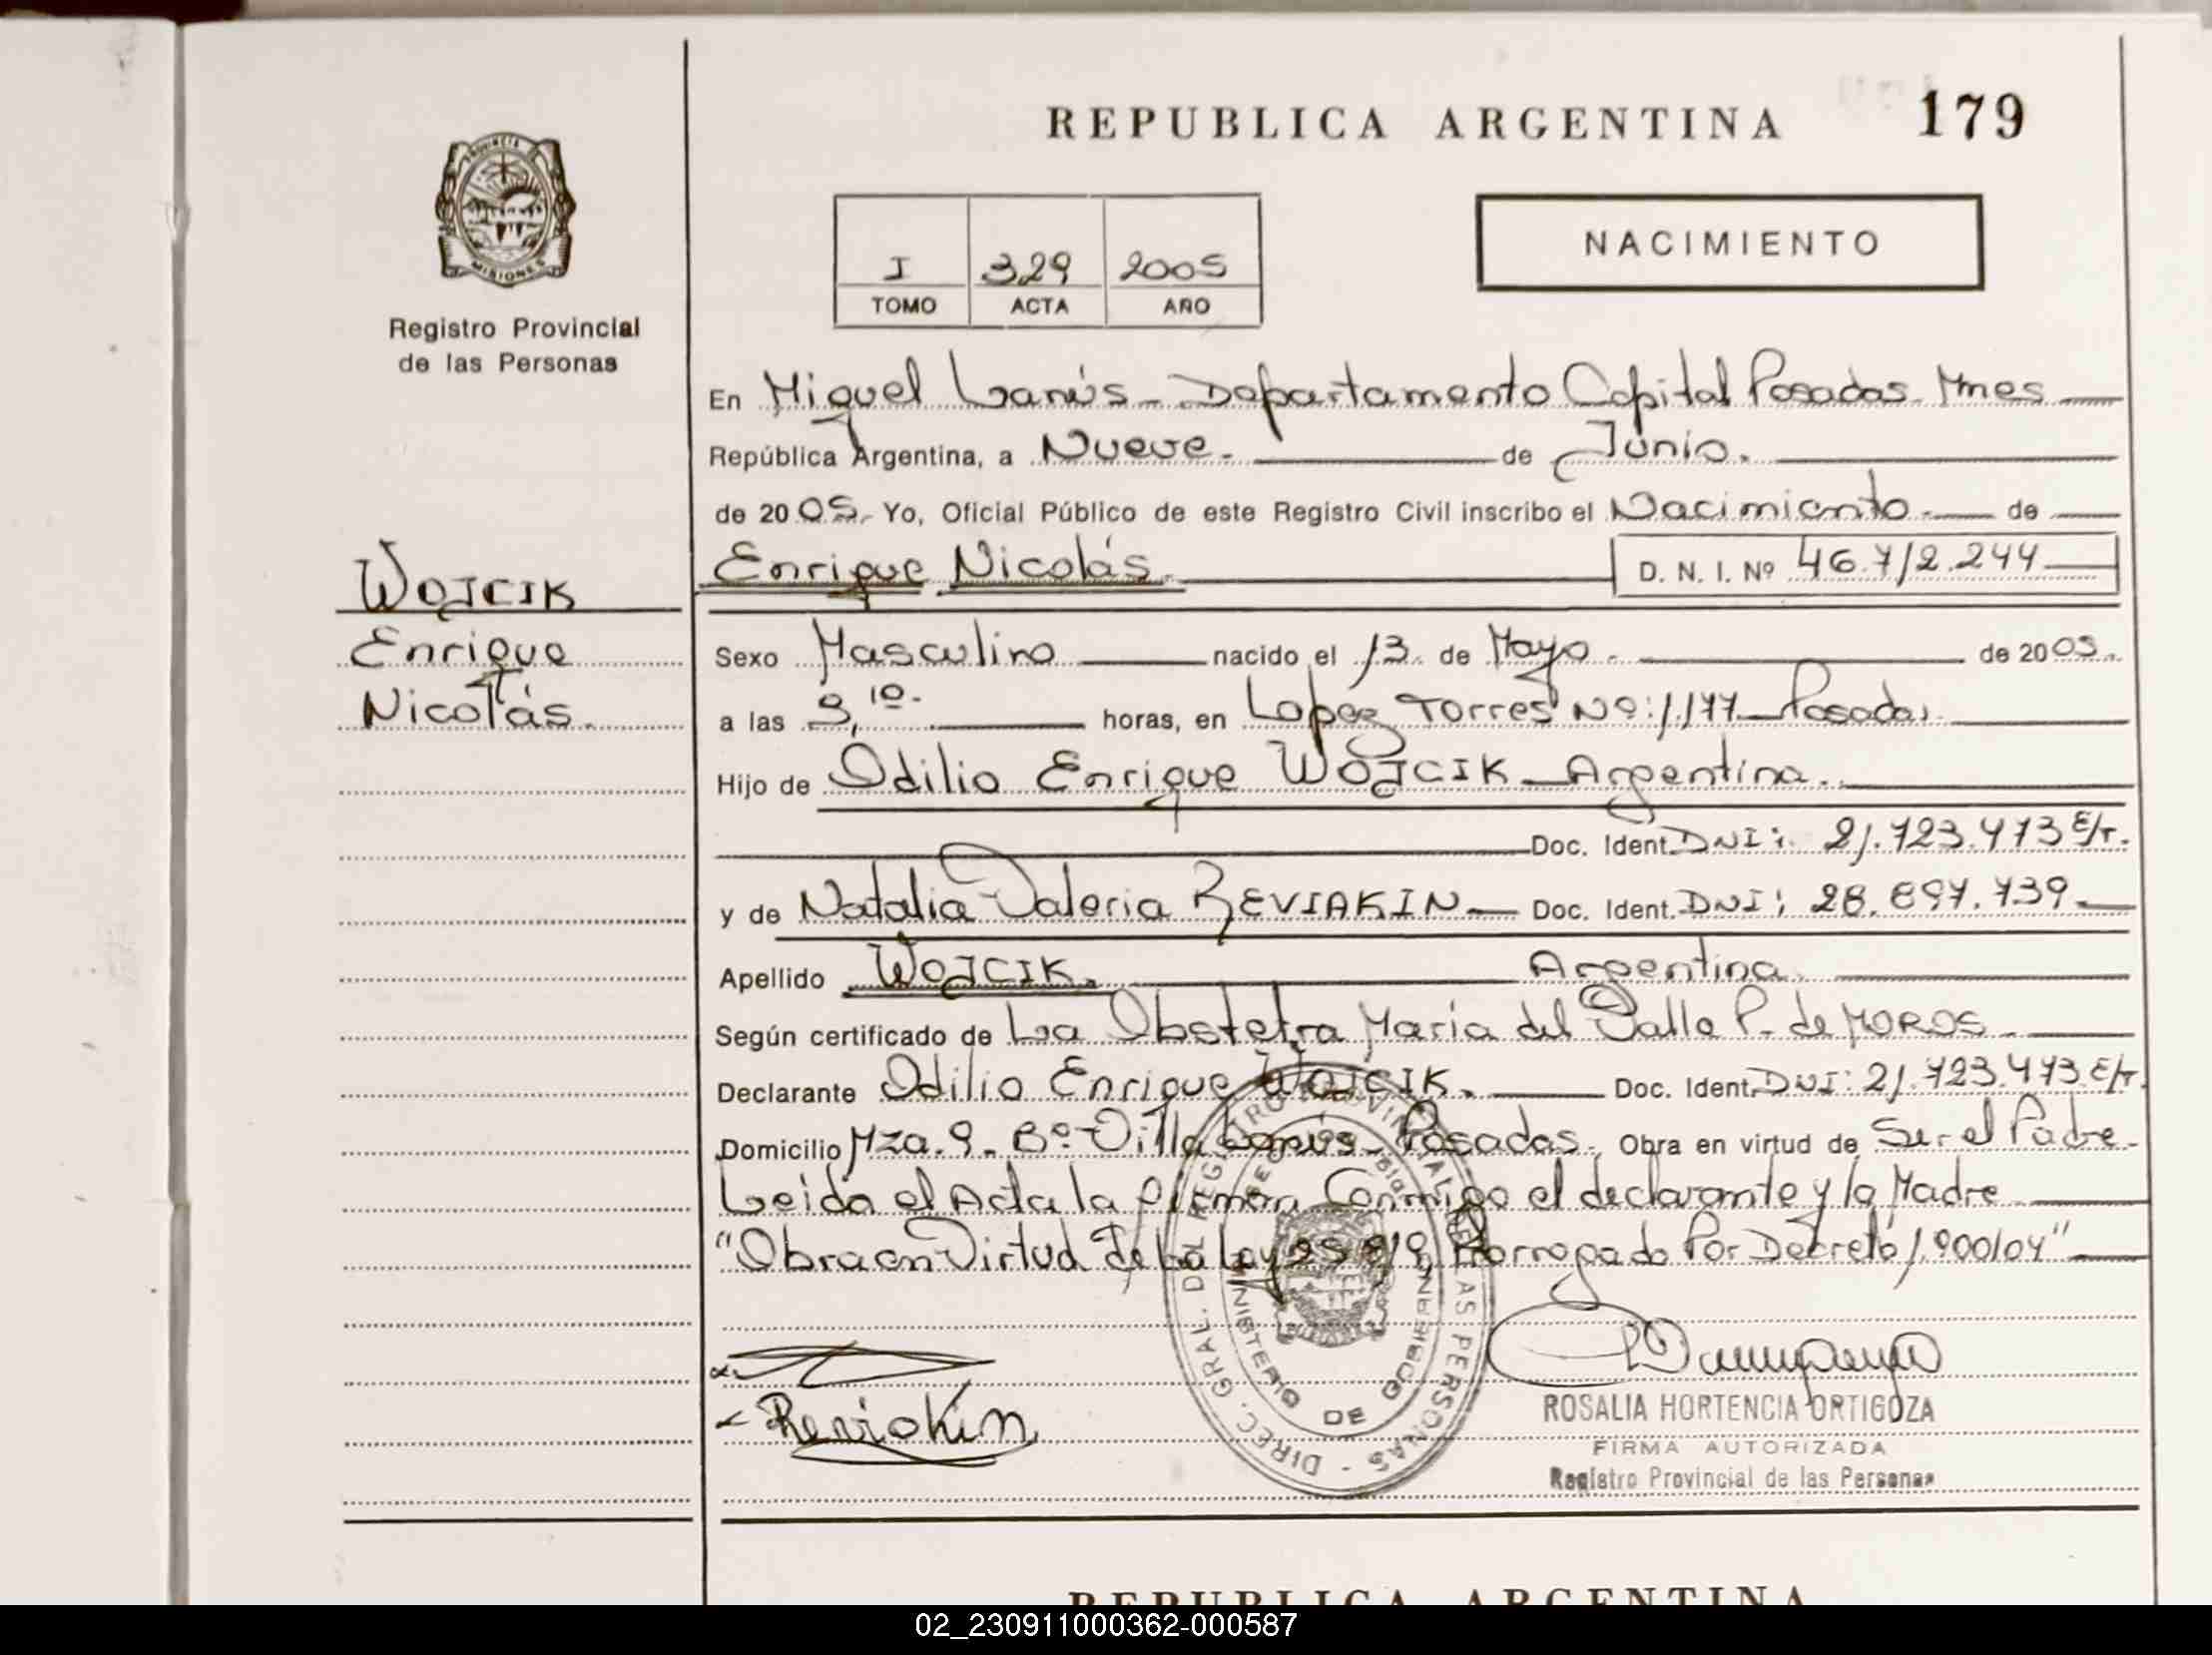 REPUBLICA ARGENTINA 179
PROVINCIA DE
MISIONES
Registro Provincial
de las Personas
I 329 2005
TOMO ACTA AÑO
NACIMIENTO
En Miguel Lanús - Departamento Capital Posadas Mnes
República Argentina, a Nueve. de Junio.
de 2005. Yo, Oficial Público de este Registro Civil inscribo el Nacimiento de
WOJCIK
Enrique
Nicolás.
Enrique Nicolás. D. N. I. Nº 46.712.244
Sexo Masculino nacido el 13 de Mayo. de 2005.
a las 9,10. horas, en Lopez Torres Nº: 1.177 Posadas
Hijo de Odilio Enrique WOJCIK Argentina.
Doc. Ident. DNI: 21.723.473 E/T.
y de Natalia Valeria REVIAKIN Doc. Ident. DNI: 28.897.739
Apellido WOJCIK. Argentina.
Según certificado de La Obstetra Maria del Valle P. de MOROS
Declarante Odilio Enrique WOJCIK. Doc. Ident. DNI: 21.723.473 E/T.
Domicilio Mza. 9. Bº Villa Lanús - Posadas. Obra en virtud de Ser el Padre
Leida el Acta la firman Conmigo el declarante y la Madre
"Obra en Virtud de La Ley 25.819 Prorrogado Por Decreto 1.900/04"
DIREC. GRAL. DEL REGISTRO PROVINCIAL DE LAS PERSONAS -
MINISTERIO DE GOBIERNO
Reviakin
ROSALIA HORTENCIA ORTIGOZA
FIRMA AUTORIZADA
Registro Provincial de las Personas
REPUBLICA ARGENTINA
02_230911000362-000587